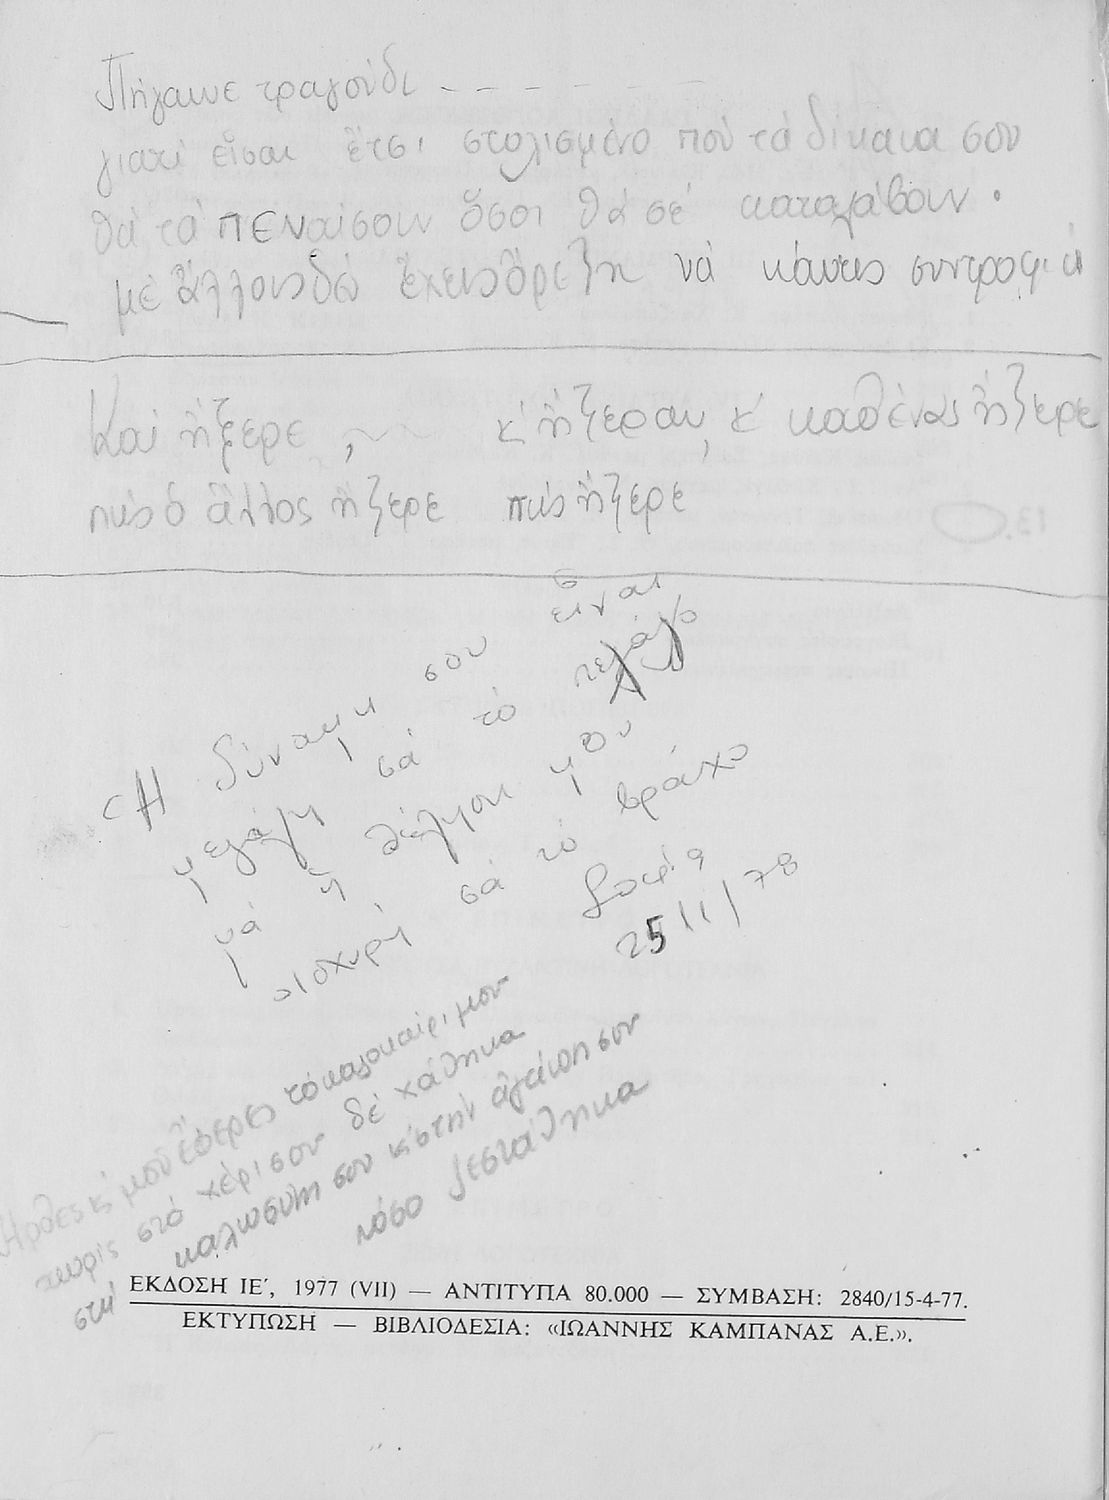 Πήγαινε τραγούδι - - - - - -
γιατί εἶσαι ἔτσι στολισμένο πού τά δίκαια σου
θά τά πεναίσουν ὅσοι θά σέ καταλάβουν.
μέ ἄλλους δέν ἔχεις ὄρεξη νά κάνεις συντροφιά
Καί ἤξερε, κ' ἤξεραν, κ' καθένας ἤξερε
πώς ὁ ἄλλος ἤξερε πώς ἤξερε
Ἡ δύναμη σου εἶναι
μεγάλη σά τό πελάγο
μά ἡ θέληση μου
ἰσχυρή σά τό βράχο
Σοφία
25/11/78
Ἦρθες κ' μοῦ ἔφερες τό καλοκαίρι μου
χωρίς στό χέρι σου δέ χάθηκα
στή καλωσύνη σου κ' στήν ἀγάπη σου
πόσο ζεστάθηκα
13.
ΕΚΔΟΣΗ ΙΕ΄, 1977 (VII) — ΑΝΤΙΤΥΠΑ 80.000 — ΣΥΜΒΑΣΗ: 2840/15-4-77.
ΕΚΤΥΠΩΣΗ — ΒΙΒΛΙΟΔΕΣΙΑ: «ΙΩΑΝΝΗΣ ΚΑΜΠΑΝΑΣ Α.Ε.».